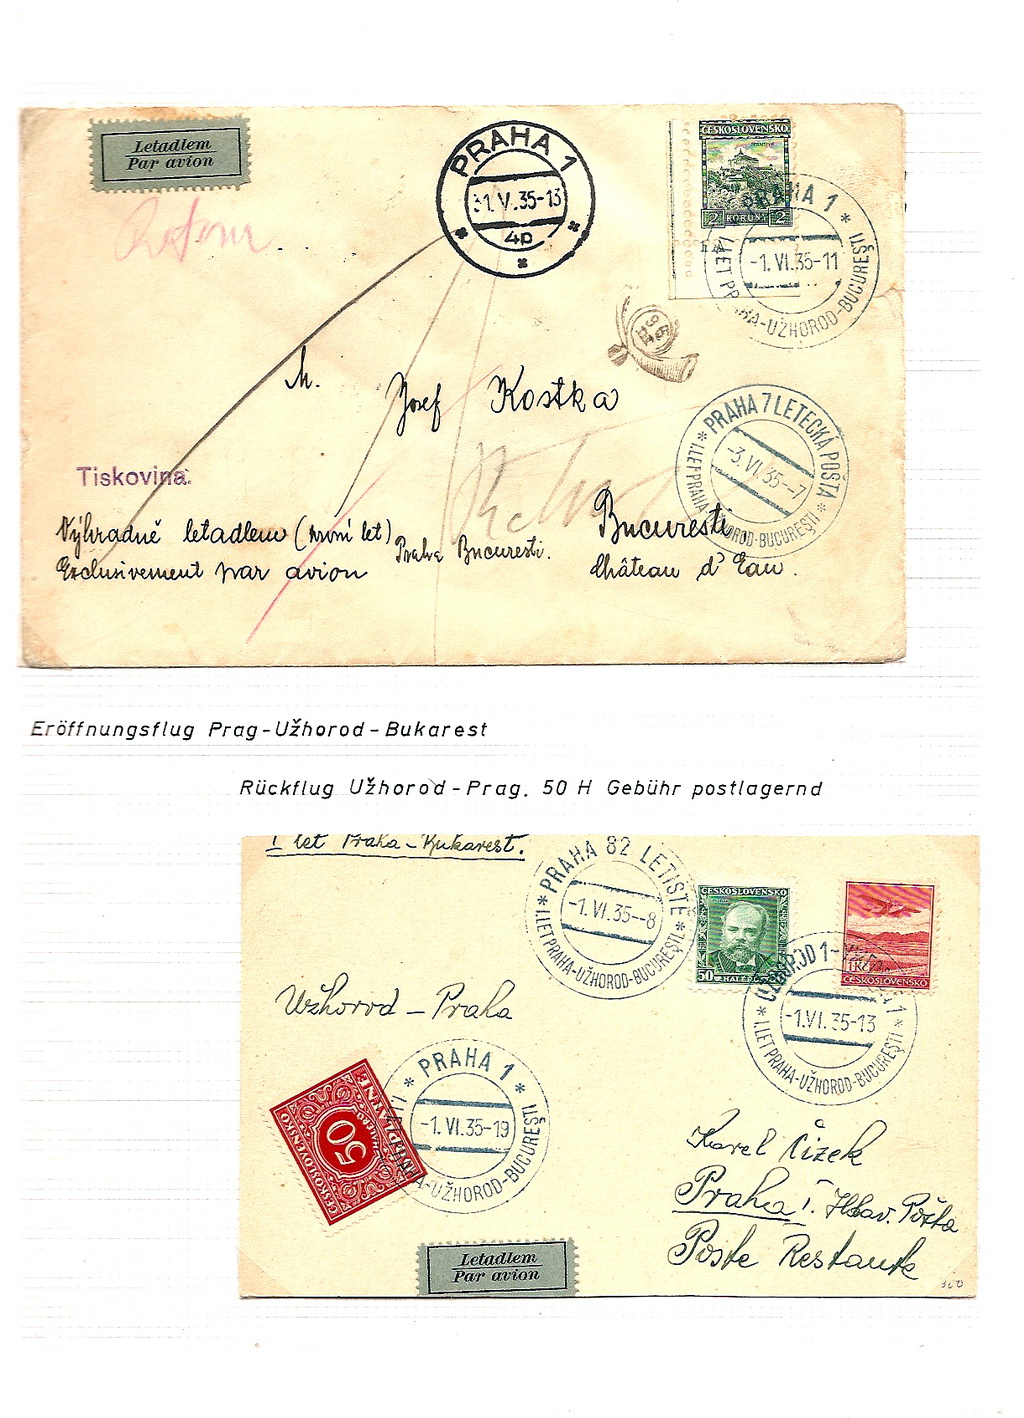 Letadlem
Par avion
PRAHA 1
31.V.35-13
4p
ČESKOSLOVENSKO
2 KORUNY 2
PRAHA 1
-1.VI.35-11
I.LET PRAHA-UŽHOROD-BUCUREŞTI
Retour
M. Josef Kostka
PRAHA 7 LETECKÁ POŠTA
-3.VI.35--7
I.LET PRAHA-UŽHOROD-BUCUREŞTI
Tiskovina.
Výhradně letadlem (první let) Praha Bucuresti.
Exclusivement par avion
Bucuresti
Château d'Eau.
Eröffnungsflug Prag-Užhorod-Bukarest
Rückflug Užhorod-Prag. 50 H Gebühr postlagernd
I let Praha - Bukarest.
PRAHA 82 LETIŠTĚ
-1.VI.35--8
I.LET PRAHA-UŽHOROD-BUCUREŞTI
ČESKOSLOVENSKO
50
1 Kč
ČESKOSLOVENSKO
UŽHOROD 1
-1.VI.35-13
I.LET PRAHA-UŽHOROD-BUCUREŞTI
Užhorod - Praha
PRAHA 1
-1.VI.35-19
I.LET PRAHA-UŽHOROD-BUCUREŞTI
DOPLATNÉ
HALÉŘŮ
50
ČESKOSLOVENSKO
Karel Čížek
Praha I. Hlav. Pošta
Poste Restante
Letadlem
Par avion